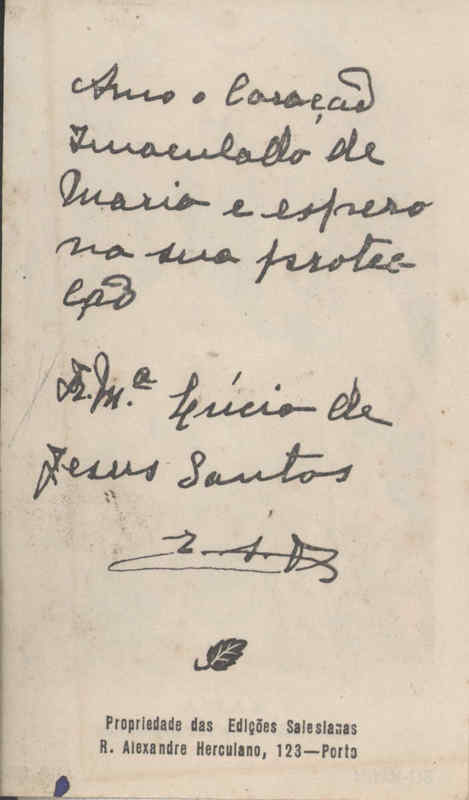 Amo o Coração
Immaculado de
Maria e espero
na sua protec-
ção
Ir. M.ª Lúcia de
Jesus Santos
R. S. D.
Propriedade das Edições Salesianas
R. Alexandre Herculano, 123—Porto